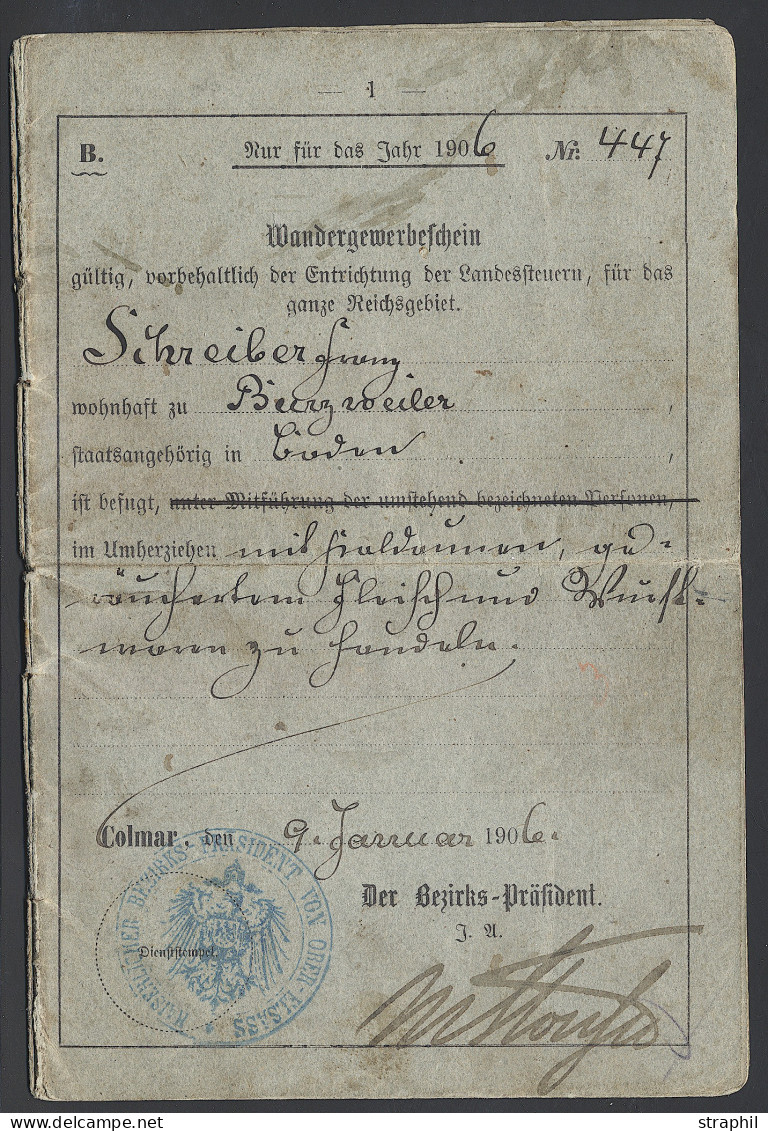 — 1 —
B. Nur für das Jahr 1906 Nr. 447
Wandergewerbeschein
gültig, vorbehaltlich der Entrichtung der Landessteuern, für das
ganze Reichsgebiet.
Schreiber Franz
wohnhaft zu Burzweiler,
staatsangehörig in Baden,
ist befugt, unter Mitführung der umstehend bezeichneten Personen,
im Umherziehen mit ge-
räuchertem Fleisch und Wurst-
waren zu handeln.
Colmar, den 9. Januar 1906.
Der Bezirks-Präsident.
J. A.
Dienststempel.
KAISERLICHER BEZIRKS-PRÄSIDENT VON OBER-ELSASS
www.delcampe.net
straphil